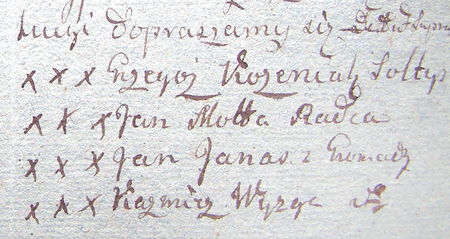 Ludzi Dopraszamy się
x x x Grzegoż Kozeniak Sołtys
x x x Jan Motta Radca
x x x Jan Janas z Gromady
x x x Kazmirz Wyzga